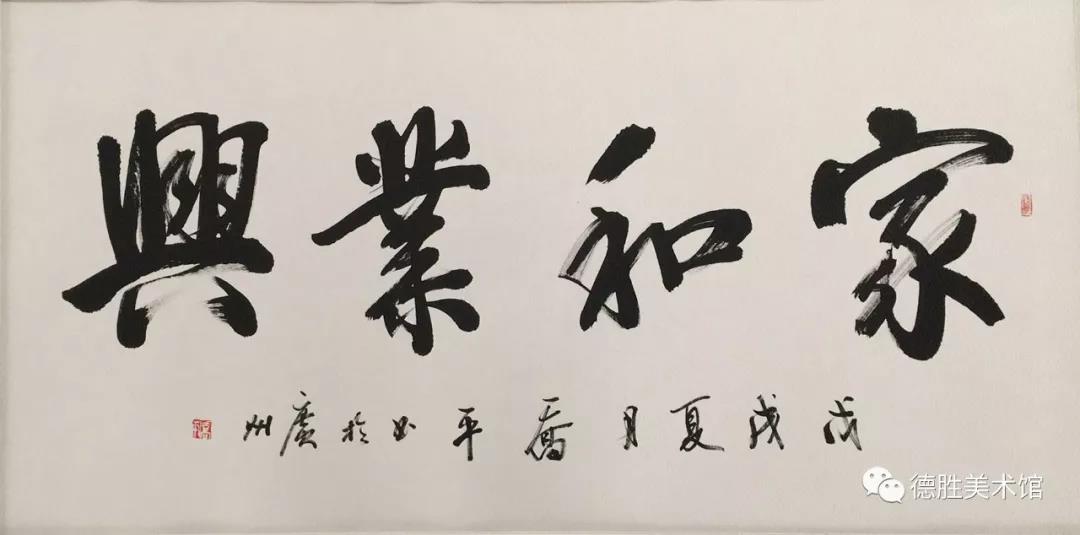 家和業興
戊戌夏月喬平书於廣州
德胜美术馆